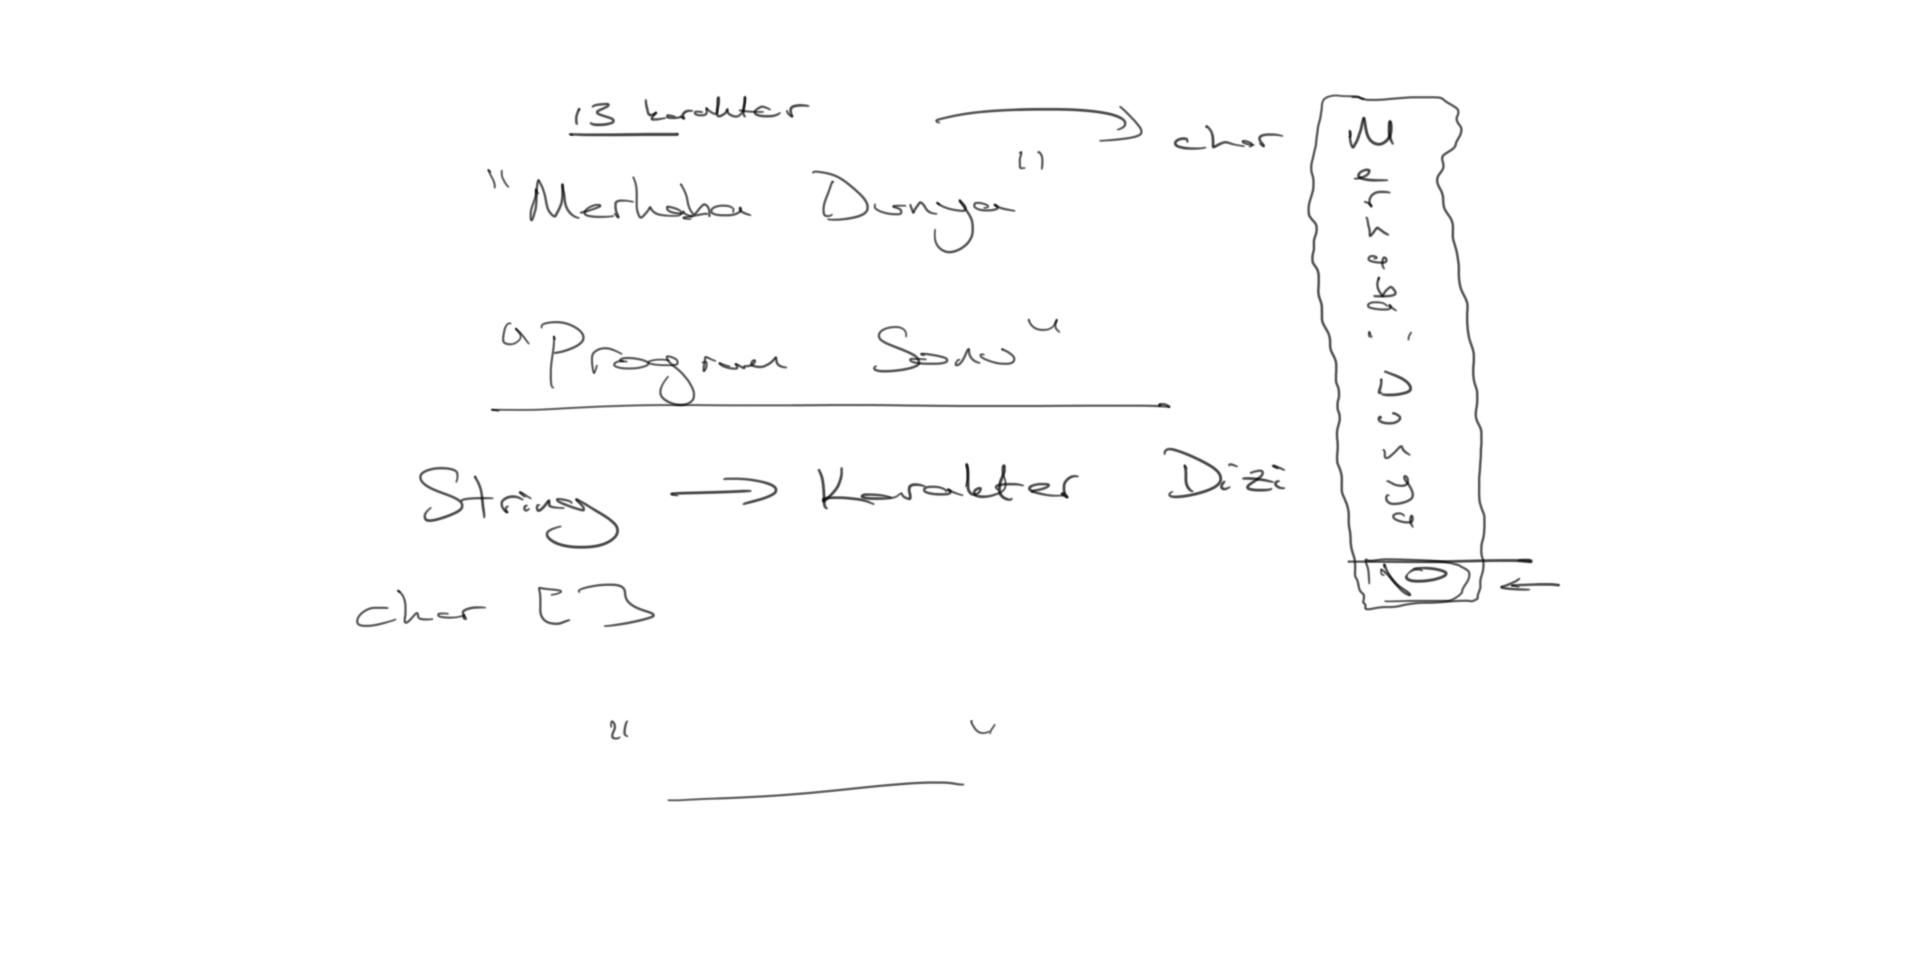 13 karakter
"Merhaba Dunya"
char
"Program Sonu"
String → Karakter Dizi
char []
" "
M
e
r
h
a
b
a
' '
D
u
n
y
a
\0